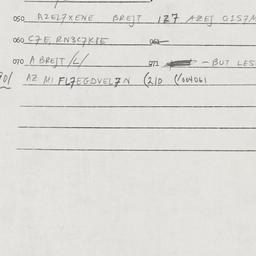 050 AZEL7XENE BREJT 1Z7 AZEJ O1S7M
060 C7E, RN3C7K1E 062
070 A BREJT /L/ 071 - BUT LES
AZ MI FL7EGDVEL7N (210 (/004061